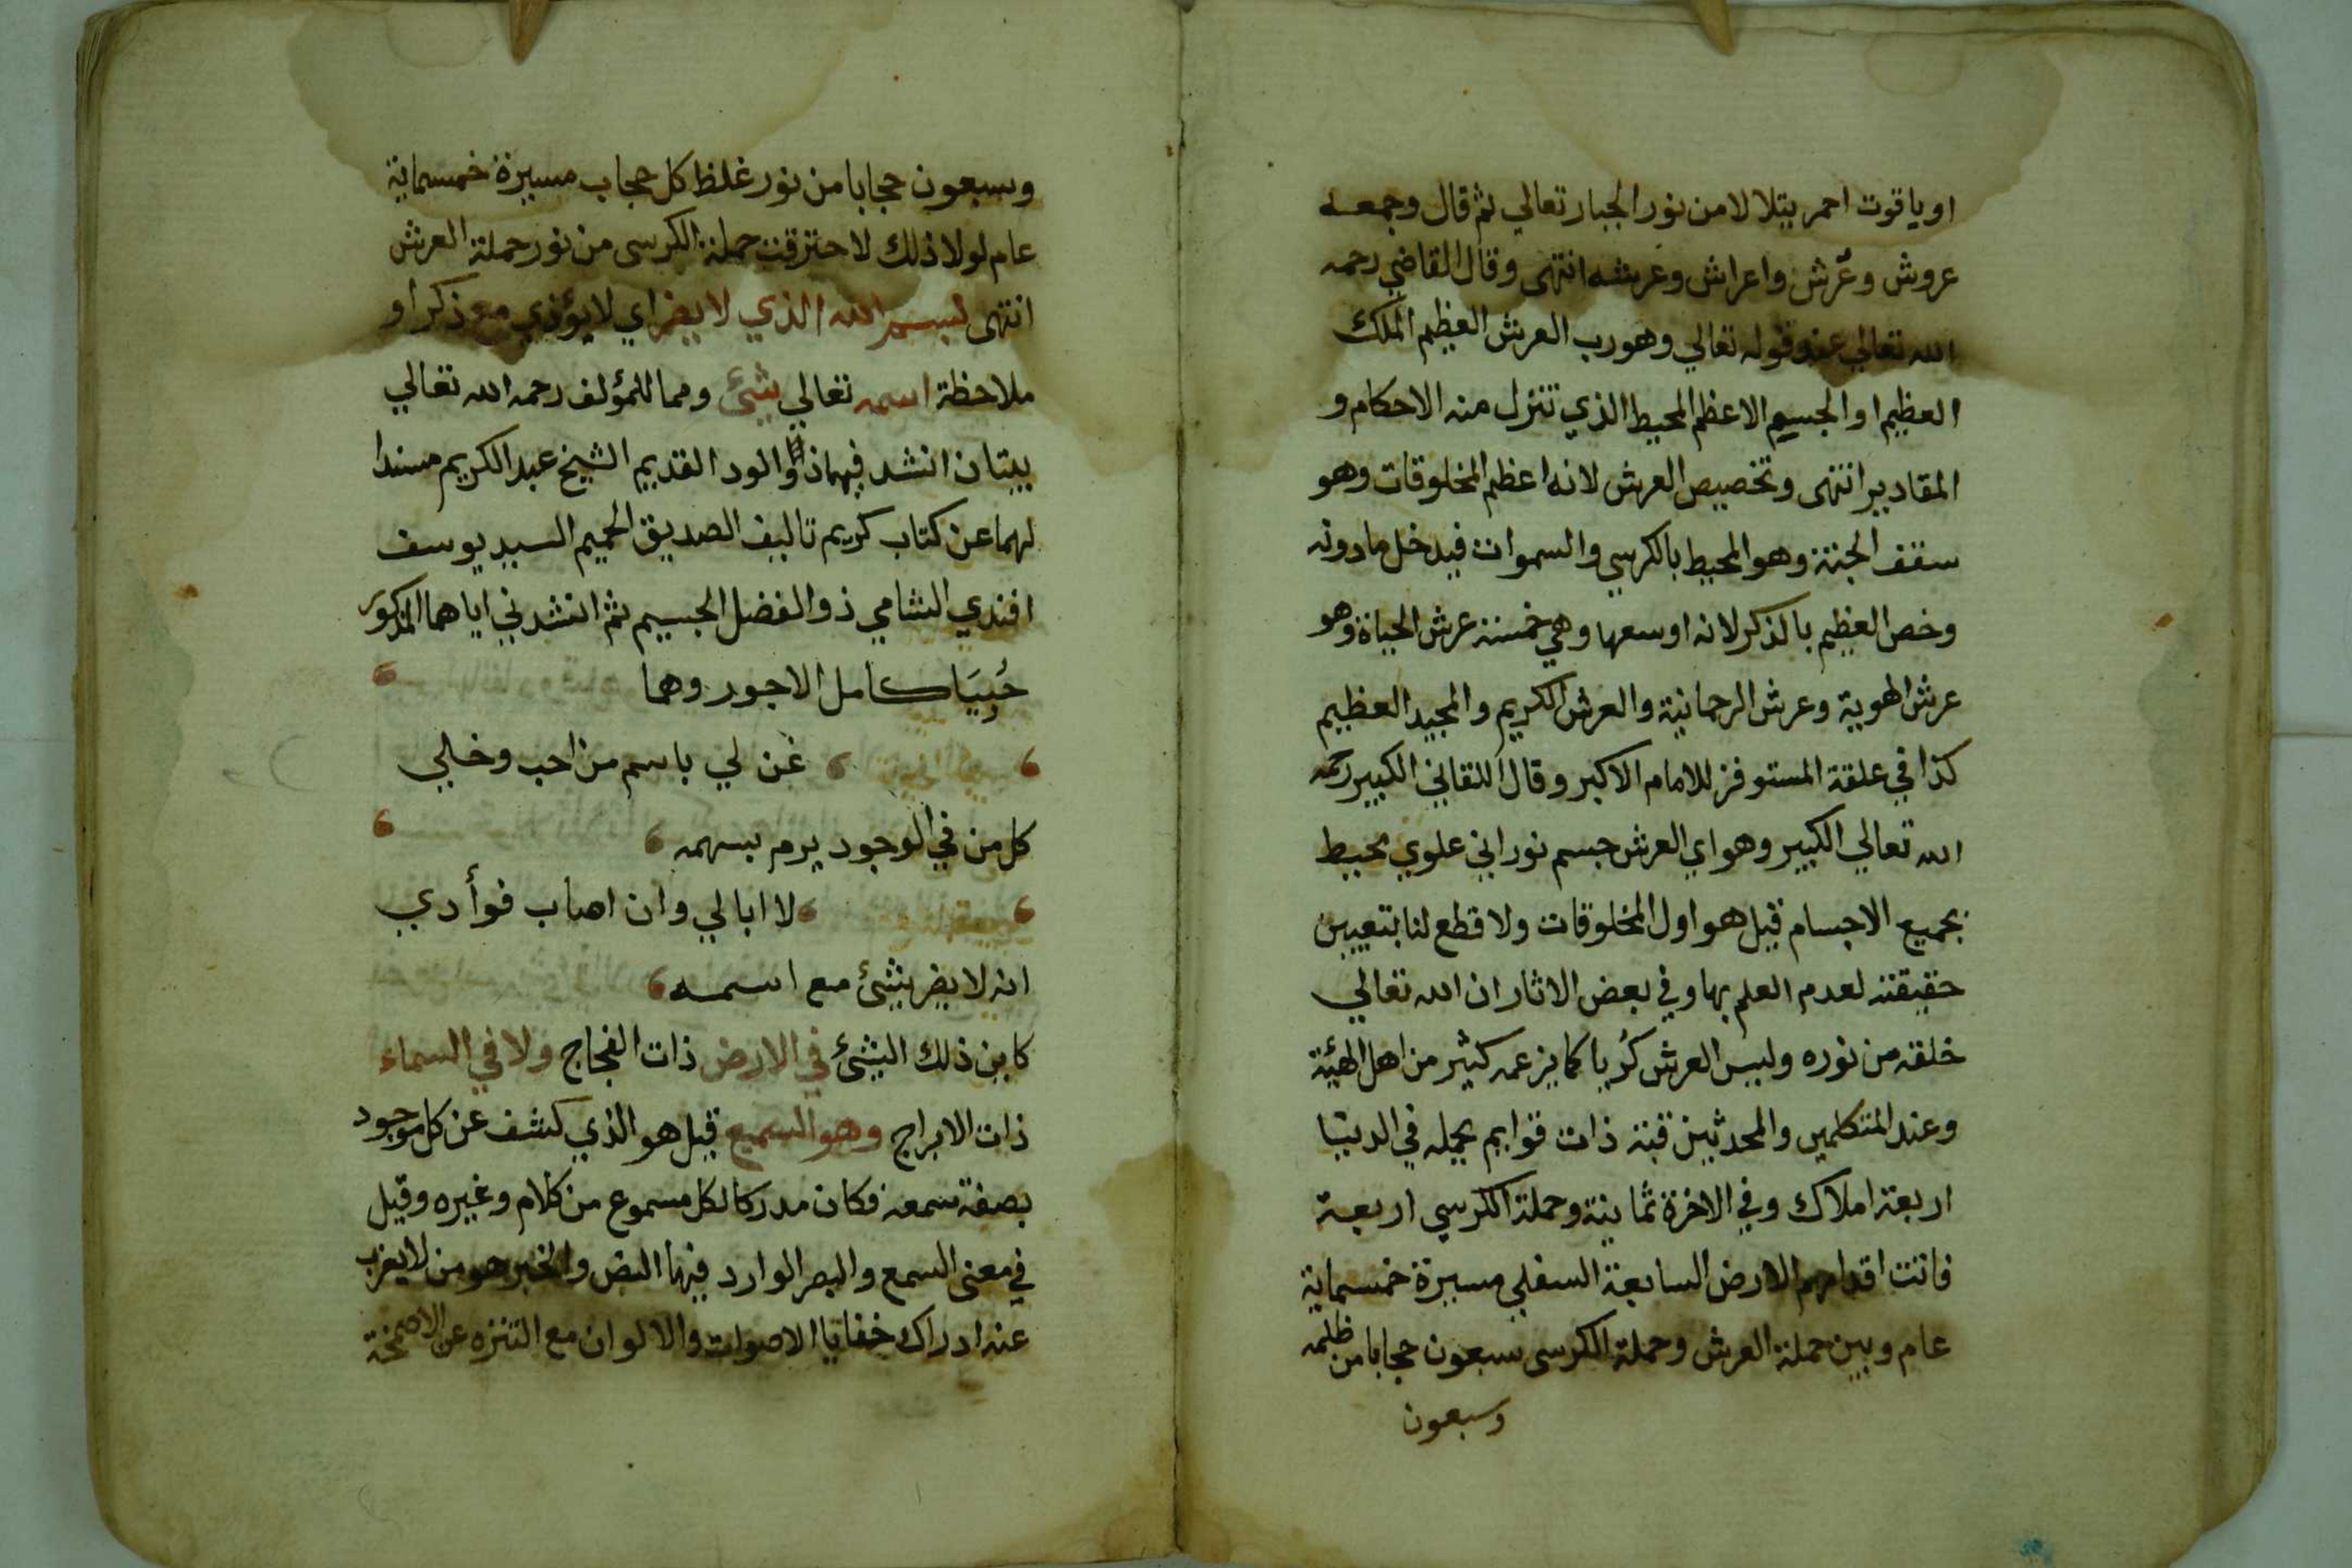 او ياقوت احمر يتلالا من نور الجبار تعالي ثم قال وجمعه
عروش وعُرش واعراش وعرشه انتهى وقال القاضي رحمه
الله تعالي عند قوله تعالي وهو رب العرش العظيم الملك
العظيم او الجسم الاعظم المحيط الذي تنزل منه الاحكام و
المقادير انتهى وتخصيص العرش لانه اعظم المخلوقات وهو
سقف الجنة وهو المحيط بالكرسي والسموات فيدخل ما دونه
وخص العظيم بالذكر لانه اوسعها وهي خمسة عرش الحياة وهو
عرش الهوية وعرش الرحمانية والعرش الكريم والمجيد العظيم
كذا في علقة المستوفز للامام الاكبر وقال اللقاني الكبير رحمه
الله تعالي الكبير وهو اي العرش جسم نوراني علوي محيط
بجميع الاجسام قيل هو اول المخلوقات ولا قطع لنا بتعيين
حقيقته لعدم العلم بها وفي بعض الاثار ان الله تعالي
خلقه من نوره وليس العرش كُريا كما يزعمه كثير من اهل الهيئة
وعند المتكلمين والمحدثين قبة ذات قوايم يحمله في الدينا
اربعة املاك وفي الاخرة ثمانية وحملة الكرسي اربعة
فاتت اقدامهم الارض السابعة السفلي مسيرة خمسماية
عام وبين حملة العرش وحملة الكرسي سبعون حجابا من ظلمه
وسبعون
وسبعون حجابا من نور غلظ كل حجاب مسيرة خمسماية
عام لولا ذلك لاحترقت حملة الكرسي من نور حملة العرش
انتهى بسم الله الذي لا يضر اي لا يؤذي مع ذكر او
ملاحظة اسمه تعالي شئ ومما للمؤلف رحمه الله تعالي
بيتان انشدنيهما ذو الود القديم الشيخ عبد الكريم مسندا
لهما عن كتاب كريم تاليف الصديق الحميم السيد يوسف
افندي الشامي ذو الفضل الجسيم ثم انشدني اياهما المذكور
حُبِيَا كامل الاجور وهما
غن لي باسم من احب وخلي
كل من في الوجود يرم بسهمه
لا ابالي وان اصاب فوأدي
انه لا يضر شئ مع اسمه
كاين ذلك الشئ في الارض ذات الفجاج ولا في السماء
ذات الابراج وهو السميع قيل هو الذي كشف عن كل موجود
بصفة سمعه فكان مدركا لكل مسموع من كلام وغيره وقيل
في معنى السمع والبصر الوارد فيها النص والخبر هو من لا يعزب
عنه ادراك خفايا الاصوات والالوان مع التنزه عن الاصمخة